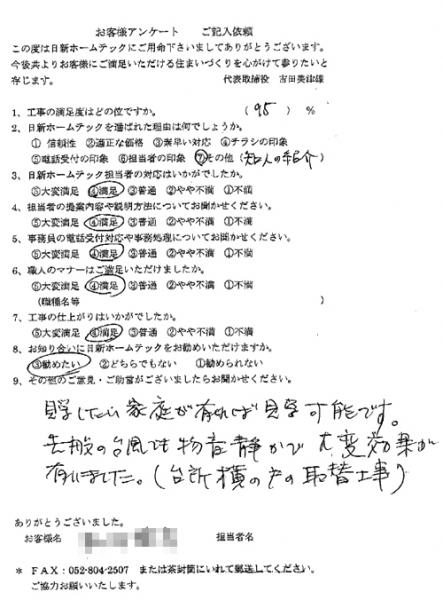 お客様アンケート　ご記入依頼
この度は日新ホームテックにご用命下さいましてありがとうございます。
今後共よりお客様にご満足いただける住まいづくりを心がけて参りたいと
存じます。　代表取締役　吉田美津雄
1、工事の満足度はどの位ですか。　( 95 ) %
2、日新ホームテックを選ばれた理由は何でしょうか。
① 信頼性　②適正な価格　③素早い対応　④チラシの印象
⑤電話受付の印象　⑥担当者の印象　⑦その他 (知人の紹介)
3、日新ホームテック担当者の対応はいかがでしたか。
⑤大変満足　④満足　③普通　②やや不満　①不満
4、担当者の提案内容や説明方法についてお聞かせください。
⑤大変満足　④満足　③普通　②やや不満　①不満
5、事務員の電話受付対応や事務処理についてお聞かせください。
⑤大変満足　④満足　③普通　②やや不満　①不満
6、職人のマナーはご満足いただけましたか。
⑤大変満足　④満足　③普通　②やや不満　①不満
(職種名等　)
7、工事の仕上がりはいかがでしたか。
⑤大変満足　④満足　③普通　②やや不満　①不満
8、お知り合いに日新ホームテックをお勧めいただけますか。
③勧めたい　②どちらでもない　①勧められない
9、その他のご意見・ご助言がございましたらお聞かせください。
見学したい家庭が有れば見学可能です。
先般の台風でも物音静かで大変効果が
有りました。(台所横の戸の取替工事)
ありがとうございました。
お客様名　担当者名
* FAX：052-804-2507　または茶封筒にいれて郵送してください。
ご協力お願いいたします。